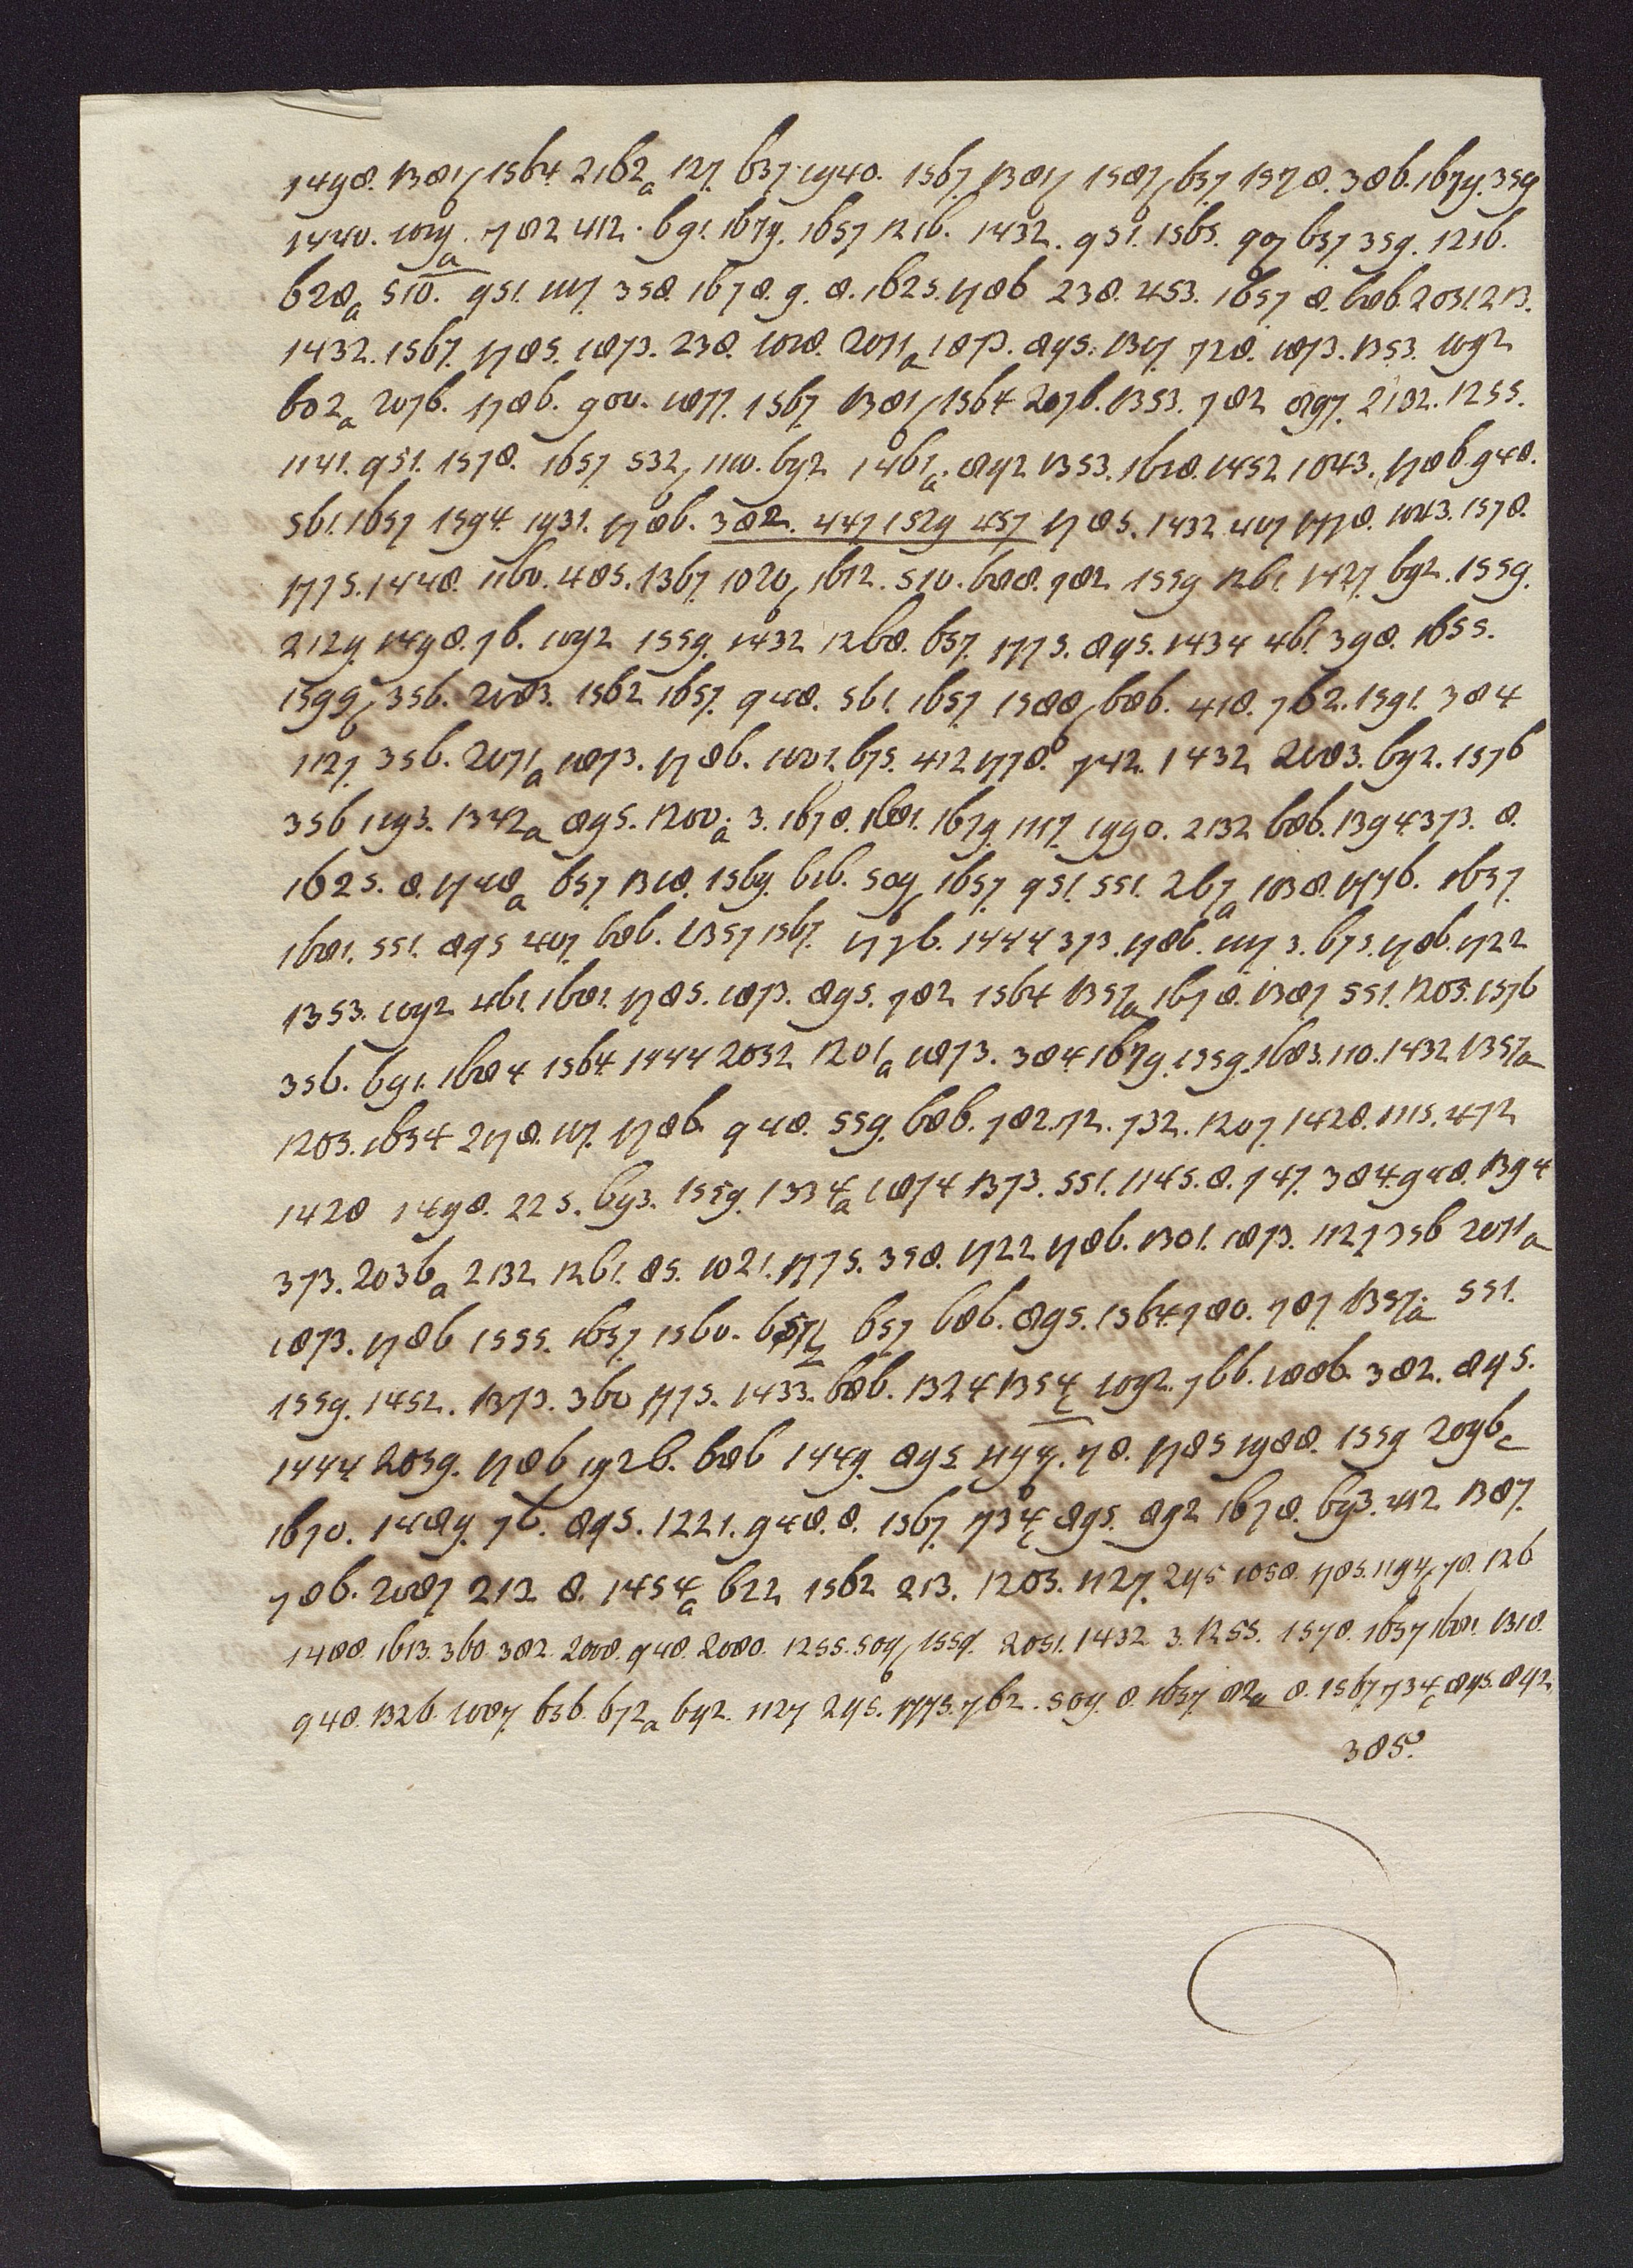 1498. 1381/ 1564 2162a 127. 637. 1940. 1567. 1381/ 1587/ 657. 1578. 386. 1679. 359
1440. 1029a. 782 412. 691. 1679. 1657 1216. 1432. 951. 1565. 907 657 359. 1216.
628a 510. 951. 1117. 358. 1678. 9. 8. 1625. 1786 238. 453. 1657 8. 686 2031. 213.
1432. 1567. 1785. 1873. 238. 1028. 2071a 1873. 895. 1317 728. 1873. 1353. 1092
602a 2076. 1786. 900. 1877. 1567 1381/ 1564 2076. 1353. 782 2132. 1255.
1141. 951. 1578. 1657 532/ 1110. 692 1461a. 892 1353. 1628. 1452 1043. 1786 948.
561. 1657 1594 1931. 1786. 382. 447 1529 457 1785. 1432 407 1778. 1043. 1578.
1775. 1448. 1160. 485. 1367 1020/ 1612. 510. 688. 782 1559 1261. 1427 692. 1559.
2129. 1498. 76. 1092 1559. 1432 1268. 657. 1775. 895. 1434 461. 398. 1655.
1599/ 356. 2083. 1562 1657. 948. 561. 1657 1588/ 686. 418. 762. 1591. 384
1127 356. 2071a 1873. 1786. 1001. 675. 412 1778. 742. 1432 2083. 692. 1576
356 1193. 1342a 895. 1200a. 3. 1678. 1681. 1679 1117. 1990. 2132 686. 1394 373. 8.
1625. 8. 1748a 657 1318. 1569. 616. 509/ 1657. 951. 551. 267a 1038. 1776. 1657.
1681. 551. 895 407 686. 1357 1567. 1776. 1444 373. 1786. 1117 3. 673. 1786. 1722
1353. 1092 461. 1681. 1785. 1873. 895. 782 1564 1357a 1678. 1387 551. 1205. 1576
356. 691. 1684 1564 1444 2032 1201a 1873. 384 1679. 1559. 1683. 110. 1432 1357a
1203. 1654 278. 1786 948. 559. 686. 782. 72. 732. 1207. 1428. 1115. 472
1428 1498. 225. 693. 1559. 1334a 1874 1373. 551. 1145. 8. 747. 384. 948. 1394
373. 2036a 2132 1261. 85. 1021. 1775. 358. 1722 1786. 1301. 1873. 1127 356 2071a
1873. 1786 1555. 1657. 1560. 657 686. 895. 1564. 780. 787 1357a 551.
1559. 1452. 1373. 360 1775. 1433. 686. 1324 1354c 1092. 766. 1886. 382. 895.
1444 2059. 1786 1926. 686 1449. 895 1194c. 78. 1785 1988. 1559 2096c
1670. 1489. 76. 895. 1221. 948. 8. 1567. 734c 895. 892 1678. 693. 412 1387.
786. 2087 212 8. 1454a 622 1562 213. 1203. 1127. 295 1058. 1785. 1194c 78. 126
1488. 1613. 360. 382. 2008. 948. 2080. 1255. 509/ 1559. 2051. 1432. 3. 1255. 1578. 1657 1681. 1318.
948. 1326. 1087. 656. 672a 692. 1127 295. 1775. 762. 509. 8. 1657. 82a 8. 1567. 734c 895. 892.
385.